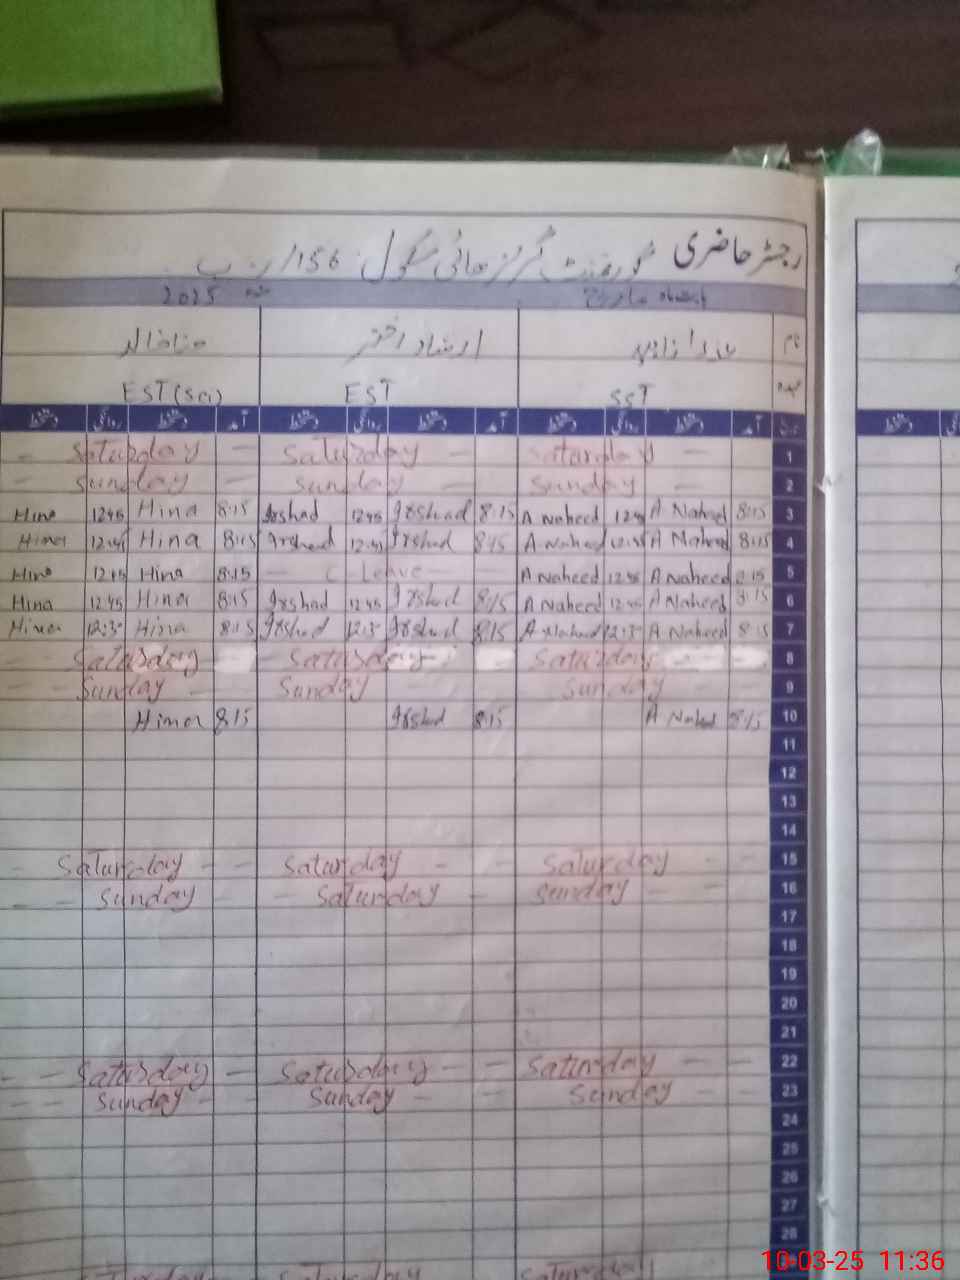 رجسٹر حاضری گورنمنٹ گرلز ہائی سکول 156/ر۔ب
2025
نام ارشاد اختر حنا خالد
عہدہ SST EST EST (Sci)
آمد دستخط روانگی دستخط آمد دستخط روانگی دستخط آمد دستخط روانگی دستخط
- Saturday - Saturday - Saturday - 1
- Sunday - Sunday - Sunday - 2
Hina 12:45 Hina 8:15 Irshad 12:45 Irshad 8:15 A Naheed 12:45 A Naheed 8:15 3
Hina 12:45 Hina 8:15 Irshad 12:45 Irshad 8:15 A Naheed 12:45 A Naheed 8:15 4
Hina 12:45 Hina 8:15 - C Leave - A Naheed 12:45 A Naheed 8:15 5
Hina 12:45 Hina 8:15 Irshad 12:45 Irshad 8:15 A Naheed 12:45 A Naheed 8:15 6
Hina 12:30 Hina 8:15 Irshad 12:30 Irshad 8:15 A Naheed 12:30 A Naheed 8:15 7
- - Saturday Saturday Saturday 8
- - Sunday - Sunday - Sunday - 9
Hina 8:15 Irshad 8:15 A Naheed 8:15 10
11
12
13
14
- Saturday - - Saturday - - Saturday - - 15
- - Sunday - - Saturday - - Sunday - - 16
17
18
19
20
21
- - Saturday - - Saturday - - Saturday - - 22
- - Sunday - - Sunday - - Sunday - - 23
24
25
26
27
28
Saturday Saturday Saturday
10-03-25 11:36